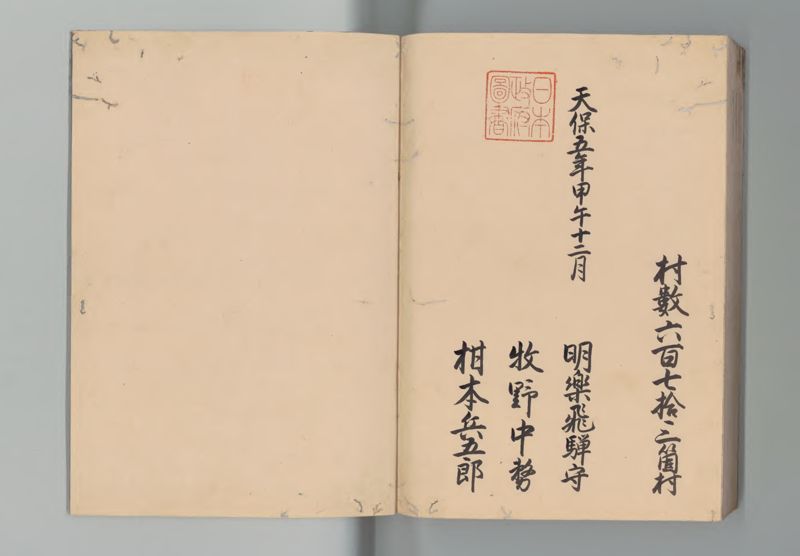 村數六百七拾三箇村
天保五年甲午十二月
明樂飛驒守
牧野中務
柑本兵五郎
日本
政府
圖書